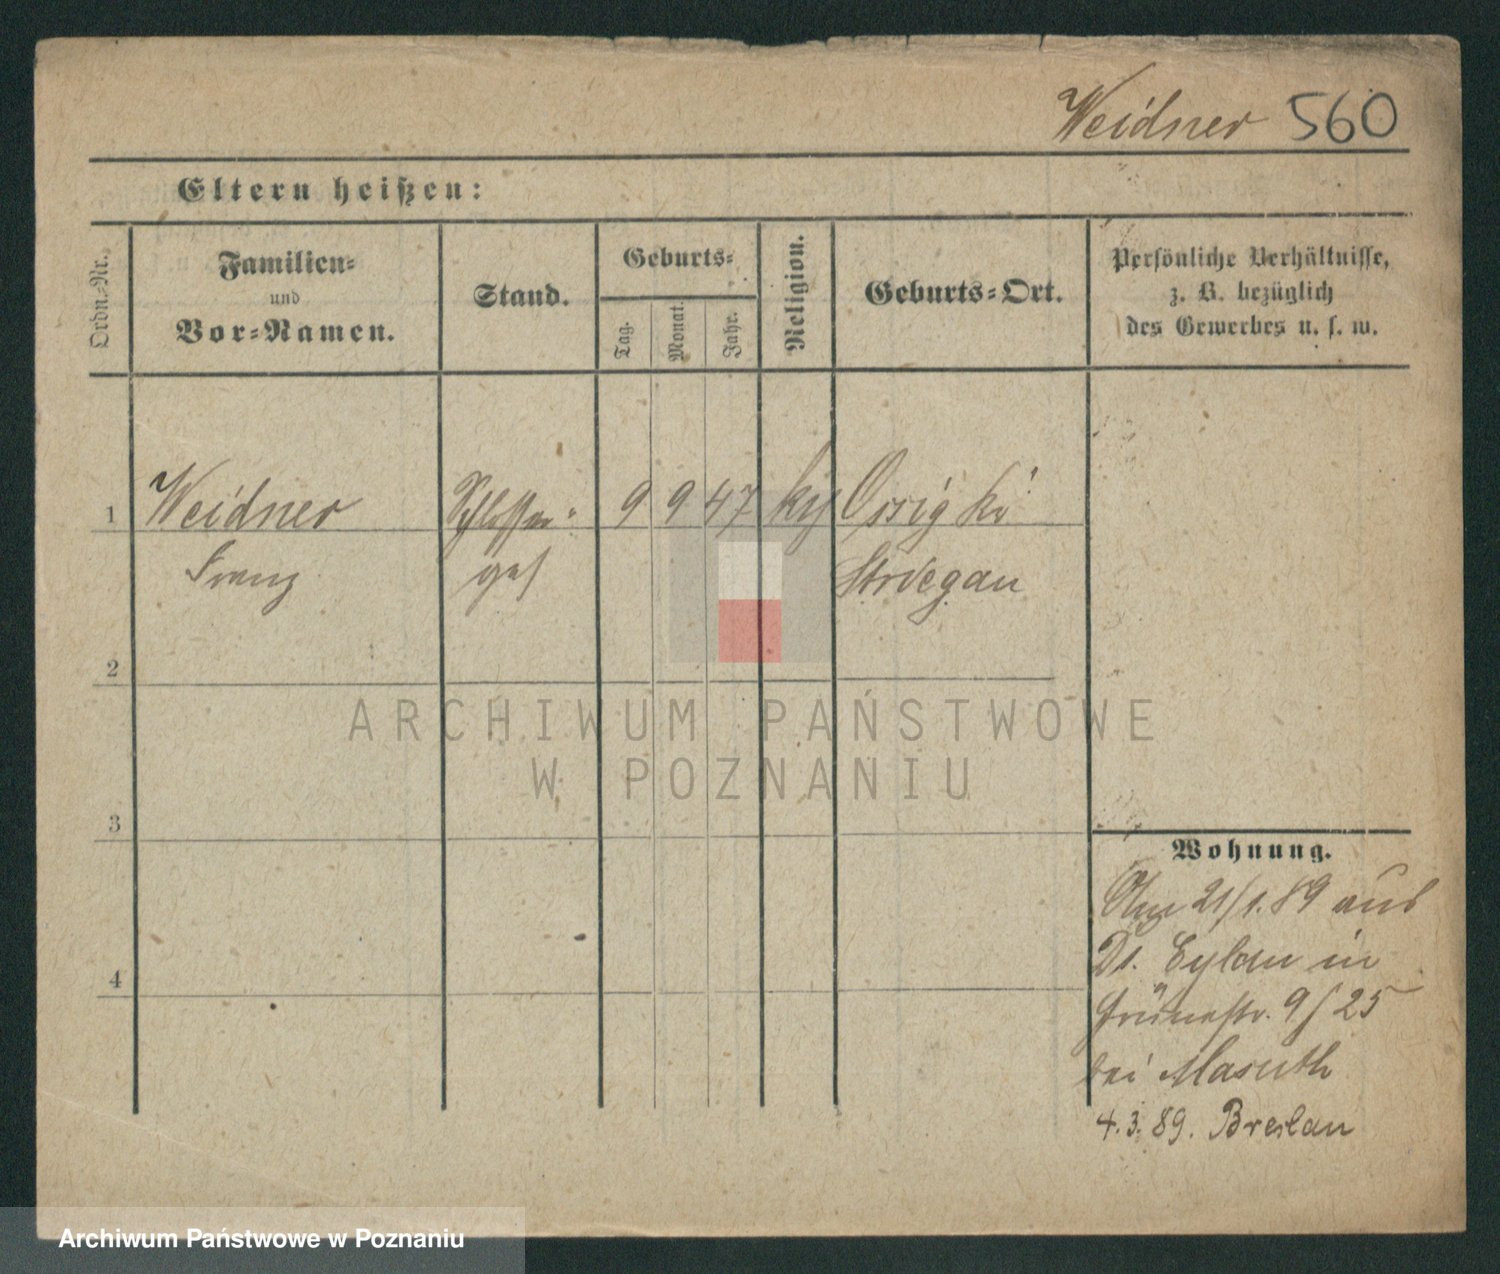 Weidner 560
Eltern heißen:
Ordn.-Nr.
Familien-
und
Vor-Namen.
Stand.
Geburts-
Tag.
Monat.
Jahr.
Religion.
Geburts-Ort.
Persönliche Verhältnisse,
z. B. bezüglich
des Gewerbes u. s. w.
1 Weidner Schlosser- 9 9 47 Ossig Kr
Franz ges Striegau
2
3
4
Wohnung.
Am 21/1.89 aus
Dt. Eylau in
Grünestr. 9/25
bei Masuth
4.3.89. Breslau
ARCHIWUM PAŃSTWOWE
W POZNANIU
Archiwum Państwowe w Poznaniu